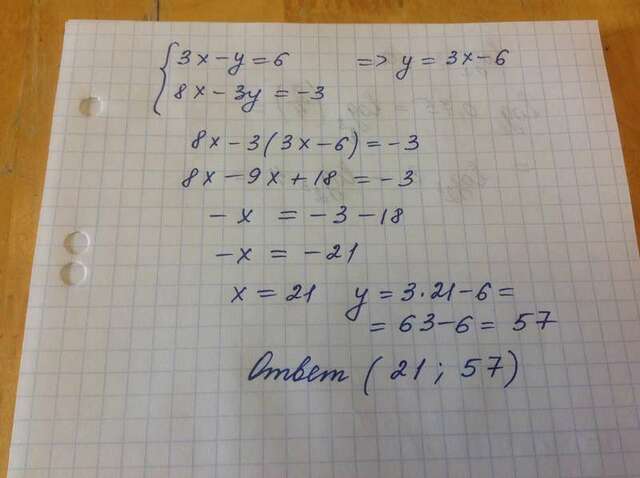 3x-y=6 => y = 3x-6
8x-3y=-3
8x-3(3x-6)=-3
8x-9x+18=-3
-x=-3-18
-x=-21
x=21 y=3·21-6=
=63-6=57
Ответ (21; 57)